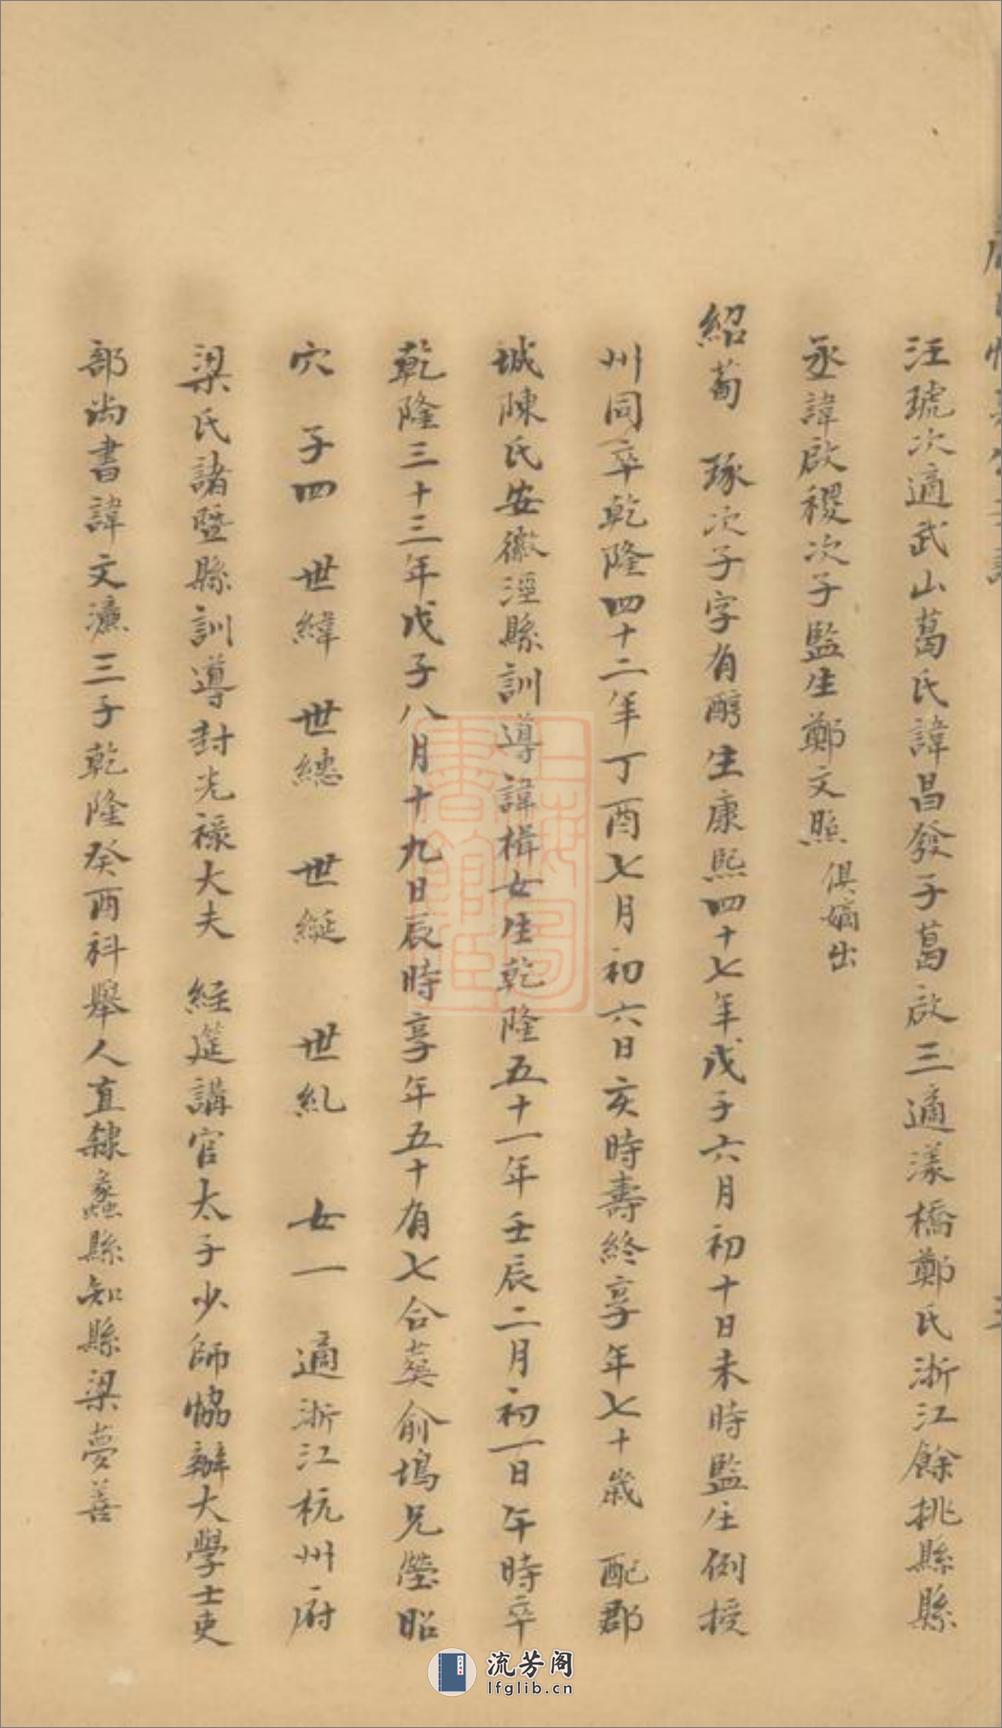 汪琥次適武山葛氏諱昌發子葛啟三適漾橋鄭氏浙江餘挑縣縣
丞諱啟稷次子監生鄭文照 俱嫡出
紹荀 琢次子字有醇生康熙四十七年戊子六月初十日未時監生例授
州同卒乾隆四十二年丁酉七月初六日亥時壽終享年七十歲 配郡
城陳氏安徽涇縣訓導諱楫女生乾隆五十一年壬辰二月初一日午時卒
乾隆三十三年戊子八月十九日辰時享年五十有七合葬俞塢兄瑩昭
穴 子四 世緯 世繐 世綖 世糺 女一 適浙江杭州府
梁氏諸暨縣訓導封光祿大夫 經筵講官太子少師協辦大學士吏
部尚書諱文濂三子乾隆癸酉科舉人直隸蠡縣知縣梁夢善
流芳阁
lfglib.cn